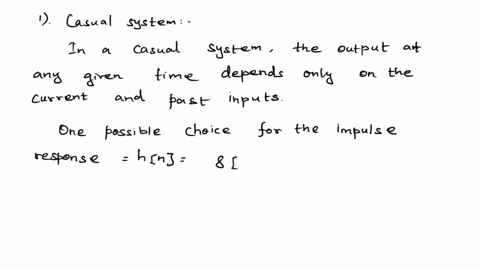 1). Casual system:-
In a casual system, the output at
any given time depends only on the
current and past inputs.
One possible choice for the impulse
response = h[n] = δ[